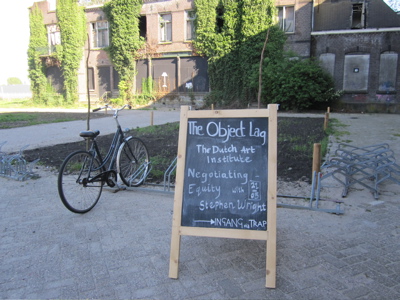 The Object Lag
The Dutch Art
Institute
Negotiating
Equity with
Stephen Wright
INGANG TRAP